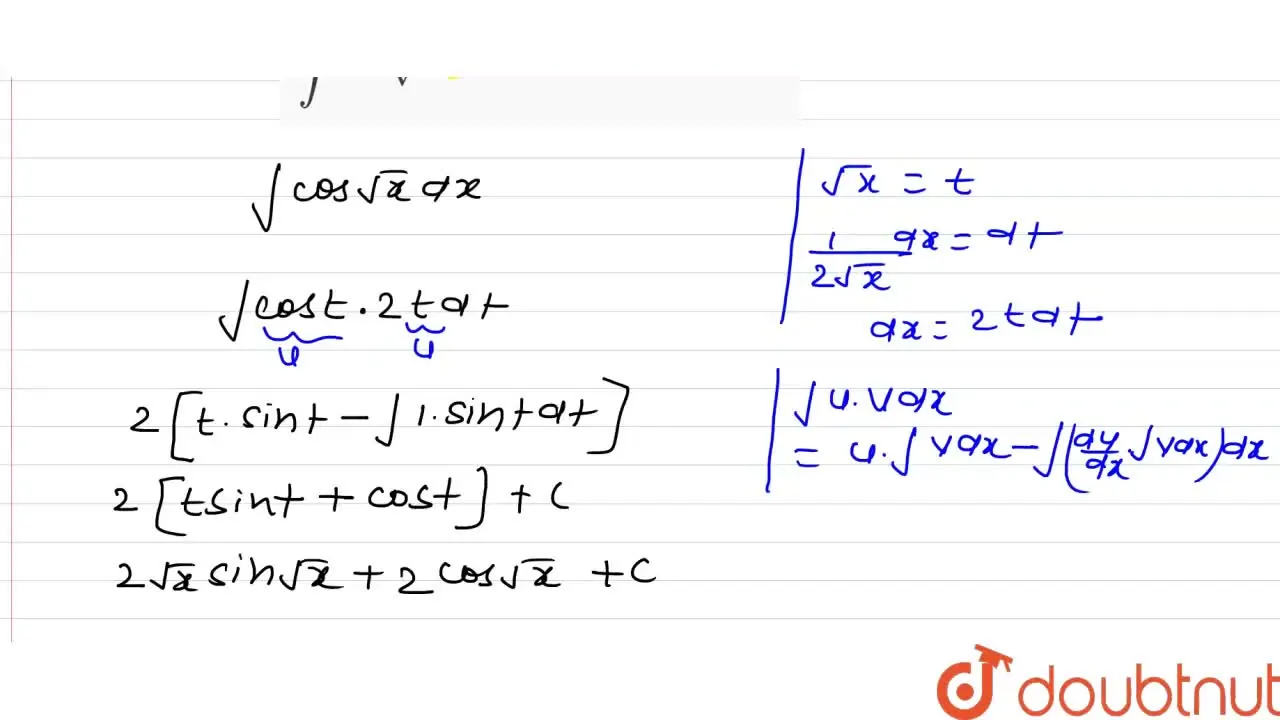 ∫ cos√x dx
∫ cost · 2 t dt
u u
2 [t. sint − ∫ 1. sint dt]
2 [tsint + cost] + C
2√x sin√x + 2 cos√x + C
√x = t
1/2√x dx = dt
dx = 2t dt
∫ u.v dx
= u. ∫ v dx − ∫ (du/dx ∫ v dx) dx
doubtnut